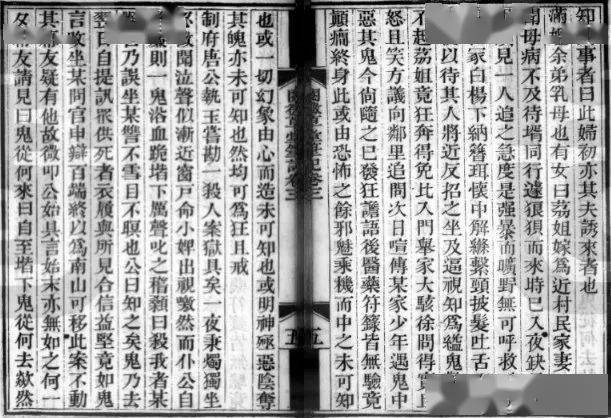 知事者曰此婦初亦其夫誘來者也
滿媼余弟乳母也有女曰荔姐嫁為近村民家妻
聞母病不及待壻同行遽狼狽而來時已入夜缺
見一人追之急度是强暴而曠野無可呼救
冢白楊下納簪珥懷中解絛繫頸披髮吐舌
以待其人將近反招之坐及逼視知為縊鬼
不起荔姐竟狂奔得免比入門舉家大駭徐問得且
怒且笑方議向鄰里追問次日喧傳某家少年遇鬼中
惡其鬼今尚隨之已發狂譫語後醫藥符籙皆無驗竟
顛癇終身此或由恐怖之餘邪魅乘機而中之未可知
閱微草堂筆記卷三
五
也或一切幻象由心而造未可知也或明神殛惡陰奪
其魄亦未可知也然均可為狂且戒
制府唐公執玉嘗勘一殺人案獄具矣一夜秉燭獨坐
忽微聞泣聲似漸近窗戶命小婢出視噭然而仆公自
則一鬼浴血跪堦下厲聲叱之稽顙曰殺我者某
官乃誤坐某讐不雪目不瞑也公曰知之矣鬼乃去
翌日自提訊眾供死者衣履與所見合信益堅竟如鬼
言改坐某問官申辯百端終以為南山可移此案不動
其幕友疑有他故微叩公始具言始末亦無如之何一
夕幕友請見曰鬼從何來曰自至堦下鬼從何去欻然